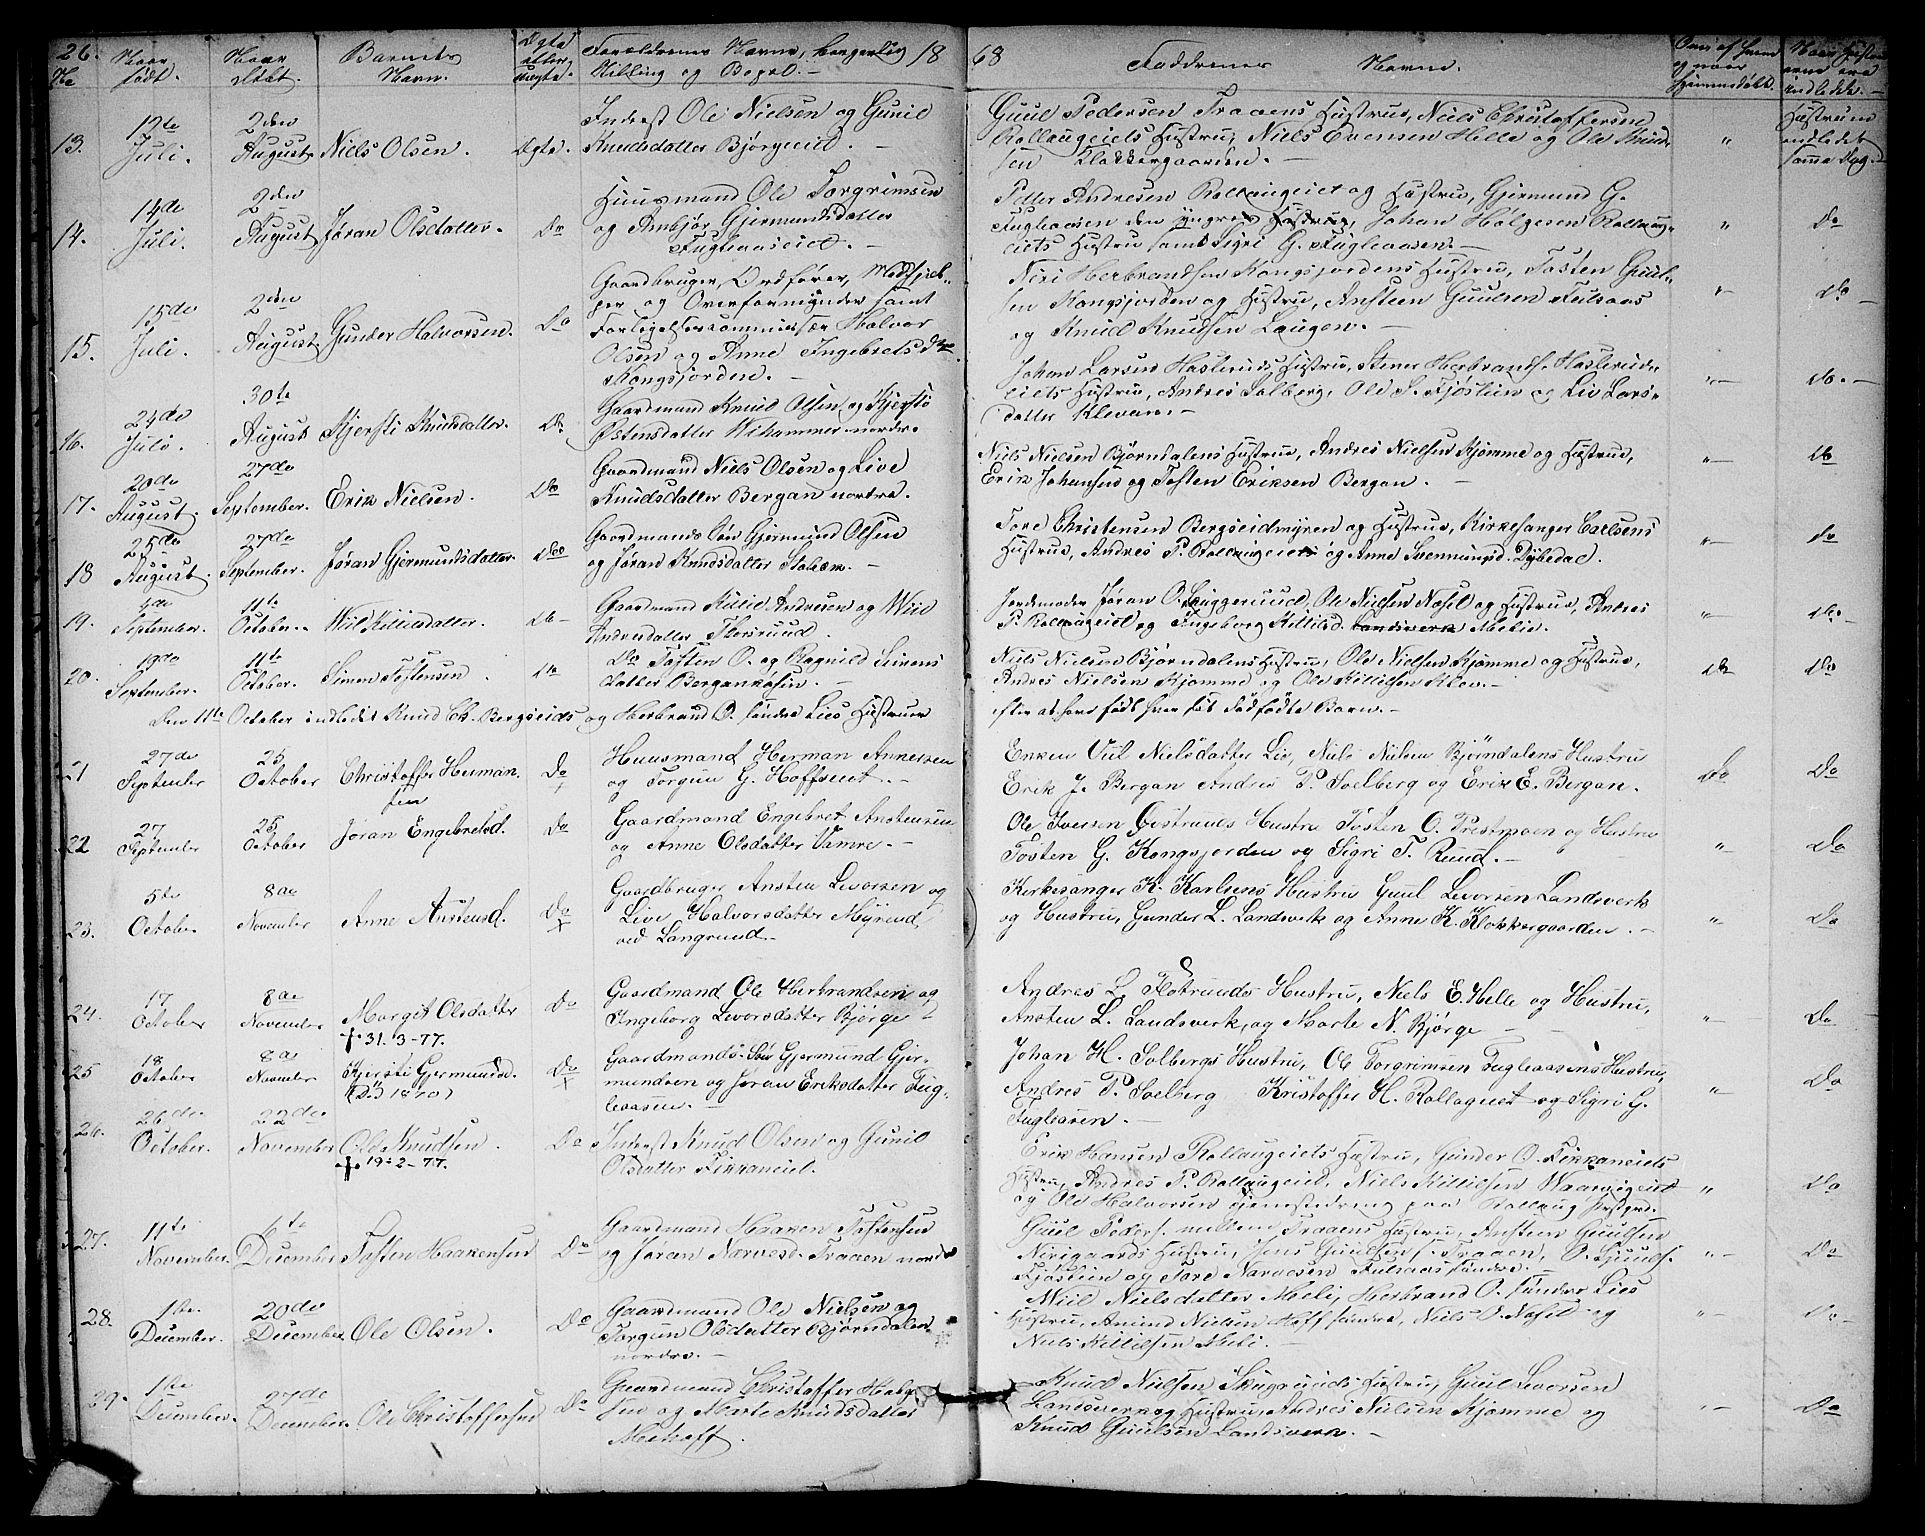 26.
No
Naar født.
Naar døbt.
Barnets Navn.
Ægte eller uægte.
Forældrenes Navne, borgerlig Stilling og Bopæl. —
1868
Faddrenes Navne.
13.
12te Juli.
2den August
Niels Olsen.
Ægte.
Inderst Ole Nielsen og Gunil
Knudsdatter Bjørgeeiet. —
Guul Pedersen Traaens Hustru, Niels Christoffersen
Rollaugeiets Hustru, Niels Evensen Helle og Ole Knud-
sen Klokkergaarden. —
"
Hustruen indledet samme Dag. —
14.
14de Juli.
2den August
Jøran Olsdatter.
Do
Huusmand Ole Torgrimsen
og Anbjør Gjermundsdatter
Fugleaaseiet. —
Petter Andresen Rollaugeiet og Hustru, Gjermund G.
Fugleaasen den yngre Hustru, Johan Holgesen Rollaug-
eiets Hustru samt Sigri G. Fugleaasen. —
"
Do
15.
15de Juli.
2den August
Gunder Halvorsen.
Do
Gaardbruger, Ordfører, Medhjæl-
per og Overformynder samt
Forligelsescommissær Halvor
Olsen og Anne Ingebretsdtr
Kongsjorden. —
Niri Herbrandsen Kongsjordens Hustru, Tosten Guul-
sen Kongsjorden og Hustru, Ansteen Guulsen Fulsaas
og Knud Knudsen Laugen. —
"
Do
16.
24de Juli.
30te August
Kjersti Knudsdatter.
Do
Gaardmand Knud Olsen og Kjersti
Østensdatter Wihammer nordre.
Johan Larsen Haslerud Hustru, Steener Herbrands. Haslerud-
eiets Hustru, Andres Solberg, Ole S. Fjøslien og Liv Lars-
datter Klevan. —
"
Do. —
17.
20de August.
27de September.
Erik Nielsen.
Do
Gaardmand Niels Olsen og Live
Knudsdatter Bergan nordre.
Niels Nielsen Bjørndalens Hustru, Andres Nielsen Kjømme og Hustru,
Erik Johansen og Tosten Eriksen Bergan. —
"
Do
18
25de August.
27de September.
Jøran Gjermundsdatter.
Do
Gaardmands Søn Gjermund Olsen
og Jøran Knudsdatter Stokem. —
Tore Christensen Bergseidmyren og Hustru, Kirkesanger Carlsens
Hustru, Andres P. Rollaugeiet og Anne Svenmungsd. Dybedal.
"
Do
19.
4de September.
11te October.
Wiil Kittilsdatter.
Do
Gaardmand Kittil Andresen og Wiil
Andresdatter Flesruud.
Jordemoder Jøran O. Skuggeruud, Ole Nielsen Næsel og Hustru, Andres
P. Rollaugeiet og Ingeborg Kittilsd. Landsverk Melie.
"
Do
20.
19de September.
11te October.
Simen Tostensen.
Do
Do Tosten O. og Ragnild Simens
datter Bergankåsin. —
Niels Nielsen Bjørndalens Hustru, Ole Nielsen Kjømme og Hustru,
Andres Nielsen Kjømme og Ole Kittilsen Klev. —
Do
Do
Den 11te October indledet Knud Ch. Bergseids og Herbrand O. søndre Lies Hustruer
efter at have født hver sit dødfødte Barn. —
21
27de September
25 October
Christoffer Herman-
sen
Do
Huusmand Herman Annersen
og Torgun G. Hoffseiet. —
Enken Viil Nielsdatter Lie, Niels Nielsen Bjørndalens Hustru
Erik J. Bergan Andres P. Soelberg og Erik E. Bergan.
Do
Do
22
27 September
25 October
Jøran Engebretsd.
Do
Gaardmand Engebret Anstensen
og Anne Olsdatter Vamre. —
Ole Iversen Østruuds Hustru Tosten O. Prestmoen og Hustru
Tosten G. Kongsjorden og Sigri T. Ruud. —
"
Do
23.
5te October
8de November
Anne Anstensd.
Do
Gaardbruger Ansten Levorsen og
Live Halvorsdatter Myreud
ved Langruud. —
Kirkesanger K. Karlsens Hustru Guul Levorsen Landsverk
og Hustru, Gunder L. Landsverk og Anne K. Klokkergaarden. —
"
Do
24.
17 October
8de November
Margit Olsdatter
+ 31. 3-77.
Do
Gaardmand Ole Herbrandsen og
Ingeborg Levorsdatter Bjørge —
Andres L. Flotruuds Hustru, Niels E. Helle og Hustru,
Ansten L. Landsverk, og Marte N. Bjørge —
"
Do
25
18 October
8de November
Kjersti Gjermundsd.
(Dö 1870)
Do
Gaardmands-Søn Gjermund Gjer-
mundsen og Jøran Eriksdatter Fug-
leaasen. —
Johan H. Solbergs Hustru, Ole Torgrimsen Fugleaasens Hustru,
Andres P. Soelberg Kristoffer H. Rollagseiet og Sigri G.
Fugleasen. —
"
Do
26.
26de October.
22de November
Ole Knudsen.
+ 19-2-77.
Do
Inderst Knud Olsen og Gunil
Olsdatter Fikkaneiet.
Erik Hansen Rollaugeiets Hustru, Gunder O. Fikkaneiets
Hustru, Andres P. Rollaugeiet, Niels Kittilsen Waarvigeiet
og Ole Halvorsen tjenestedreng paa Rollaug Prestgard.
"
Do
27.
11te November.
6te December
Tosten Haakensen
Do
Gaardmand Haaken Tostensen
og Jøran Narvesd. Traaen nordr
Guul Peders. mellem Traaens Hustru, Ansteen Guulsen
Nirigaards Hustru, Jens Guulsen s. Traaen, O. Sjuuls.
Fjøslien og Tore Narvesen Fulsaas søndre. —
"
Do
28.
1ste December.
20de December
Ole Olsen.
Do
Gaardmand Ole Nielsen og
Torgun Olsdatter Bjørndalen
nordre. —
Wiil Nielsdatter Meli, Herbrand O. søndre Lies
Hustru, Amund Nielsen Hoff søndre, Niels O. Næsel og
Niels Kittilsen Meli.
"
Do
29.
1ste December.
27de December.
Ole Christoffersen
Do
Gaardmand Christoffer Helge-
sen og Marte Knudsdatter
Mehoff.
Knud Nielsen Skugeruds Hustru, Guul Levorsen
Landsverk og Hustru, Andres Nielsen Kjømme og
Knud Guulsen Landsverk. —
"
Do